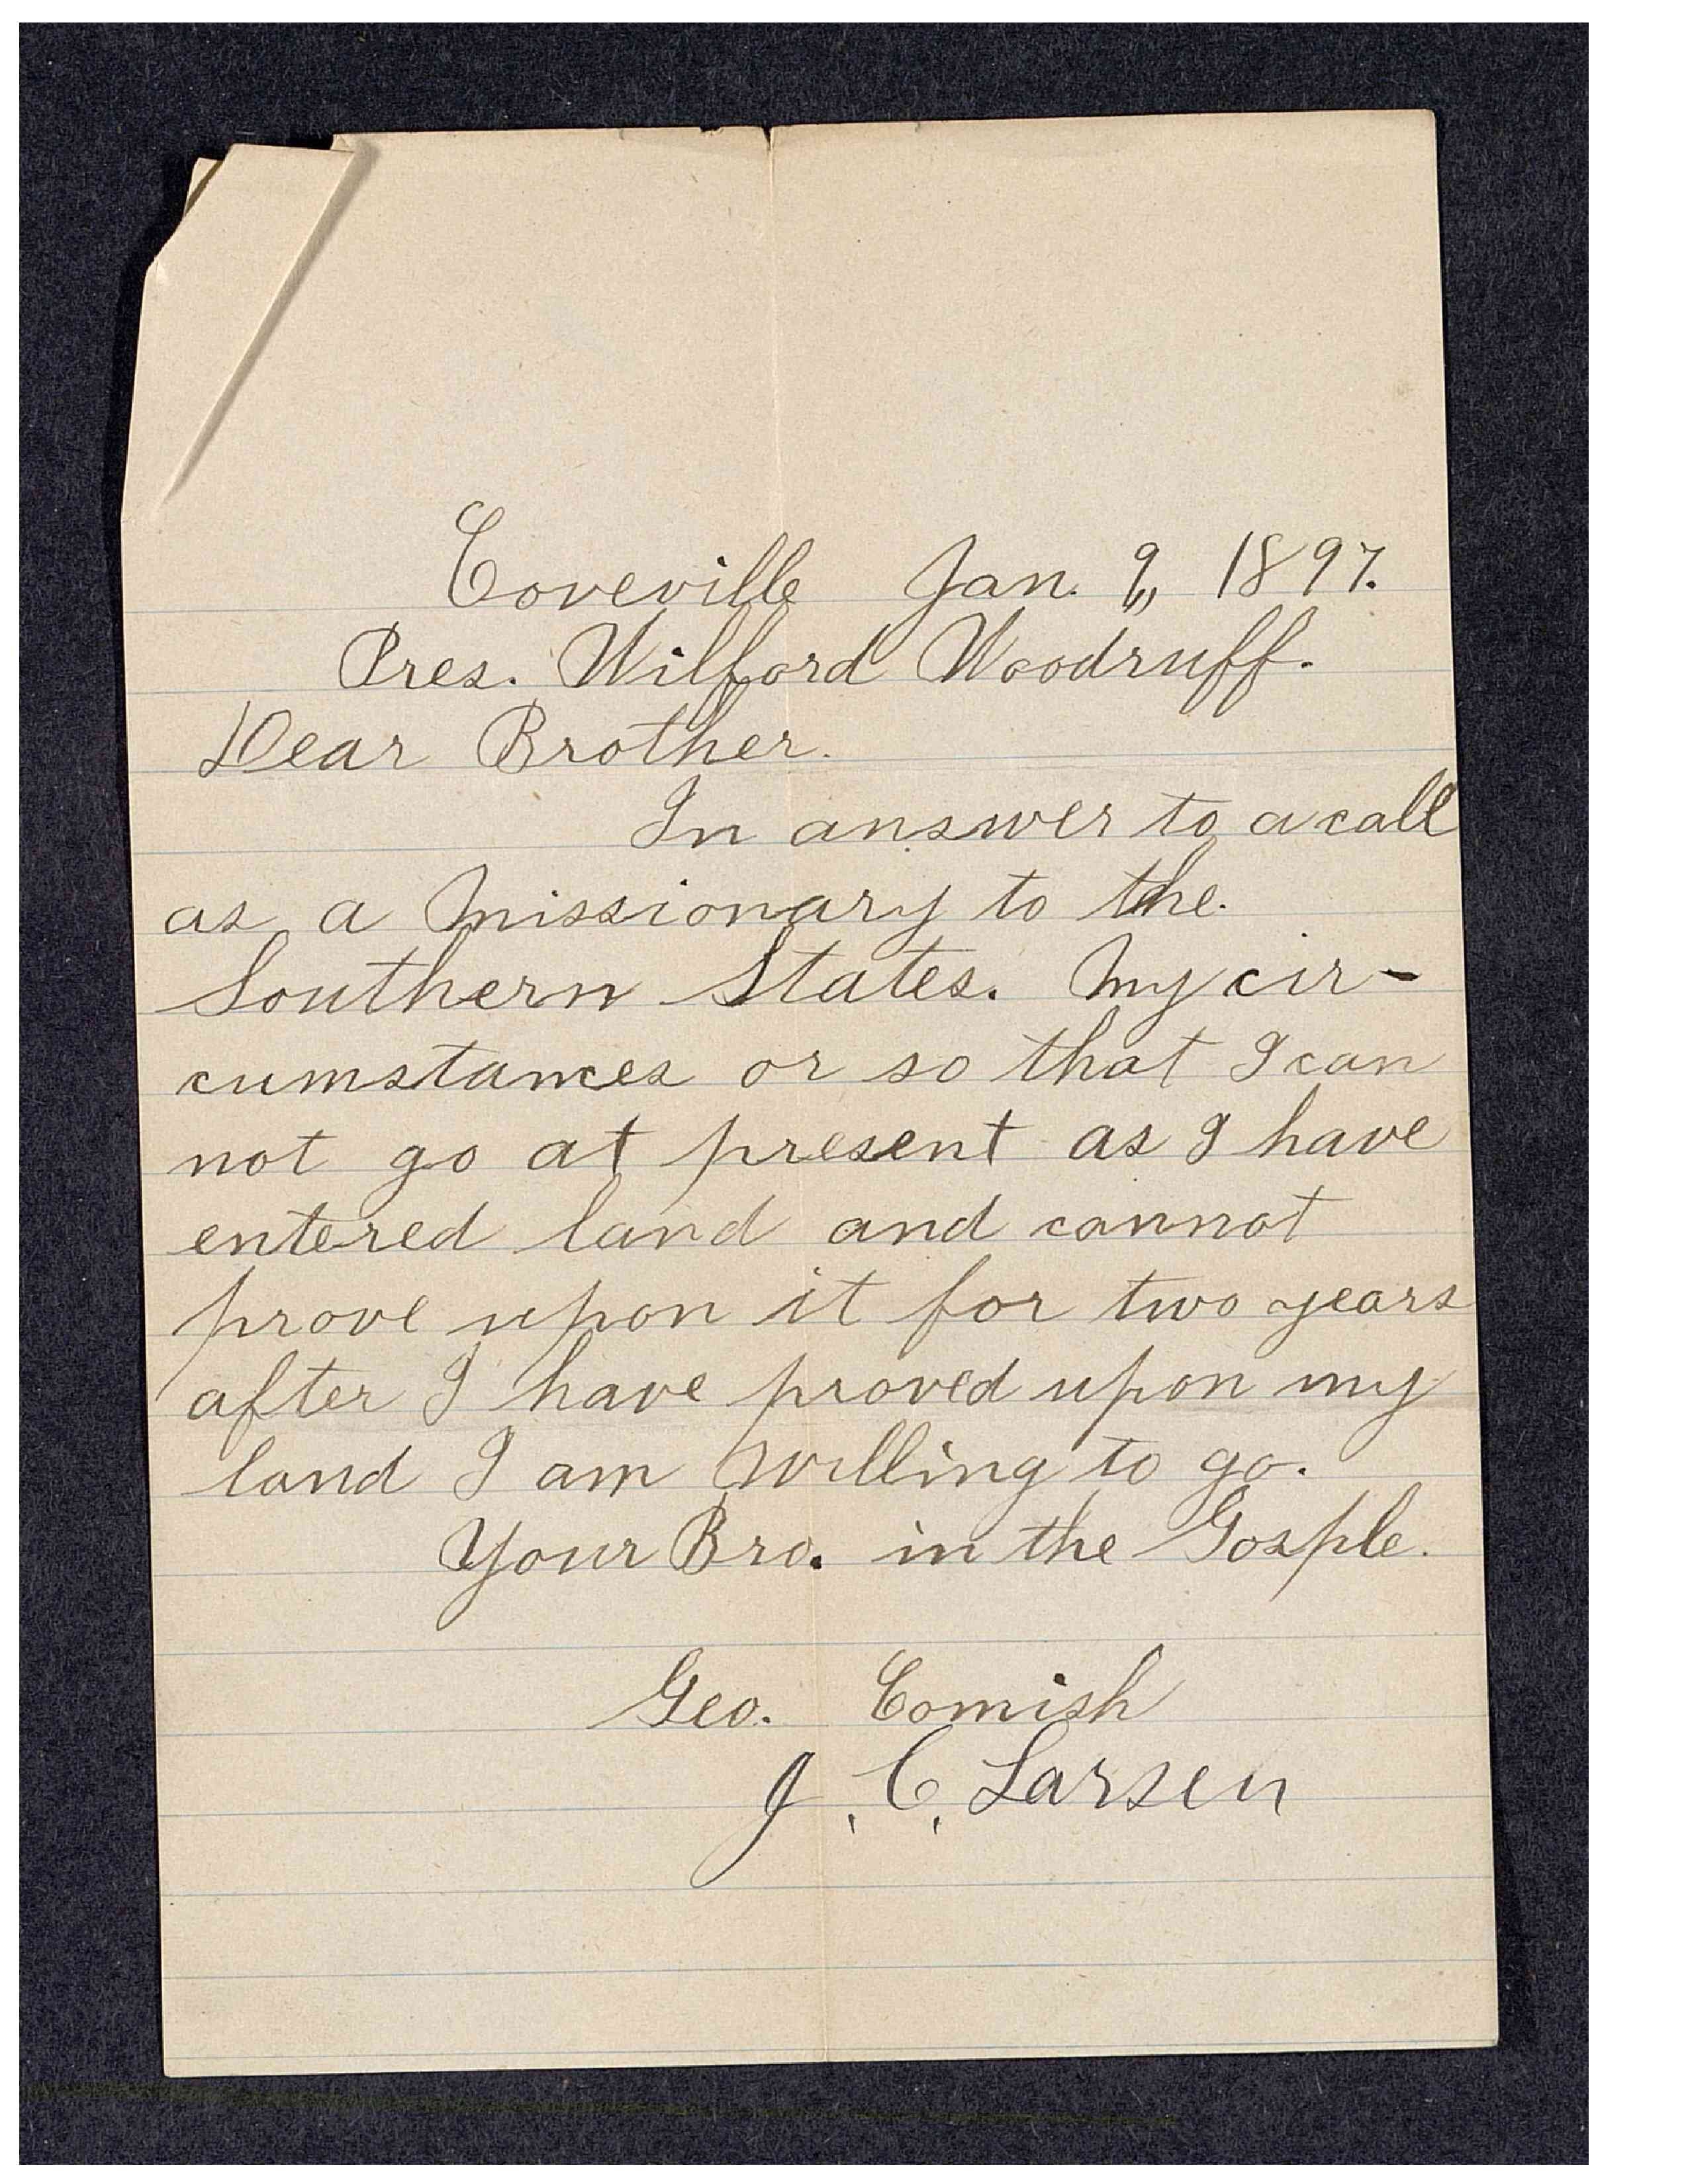 Coveville Jan. 9,, 1897.
Pres. Wilford Woodruff.
Dear Brother.
In answer to a call
as a missionary to the.
Southern States. My cir-
cumstances or so that I can
not go at present as I have
entered land and cannot
prove upon it for two years
after I have proved upon my
land I am willing to go.
Your Bro. in the Gosple.
Geo. Comish
J. C. Larsen